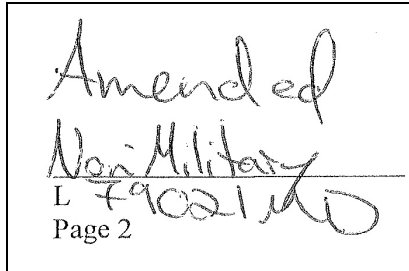 Amended
Non Military
L 79021 MD
Page 2